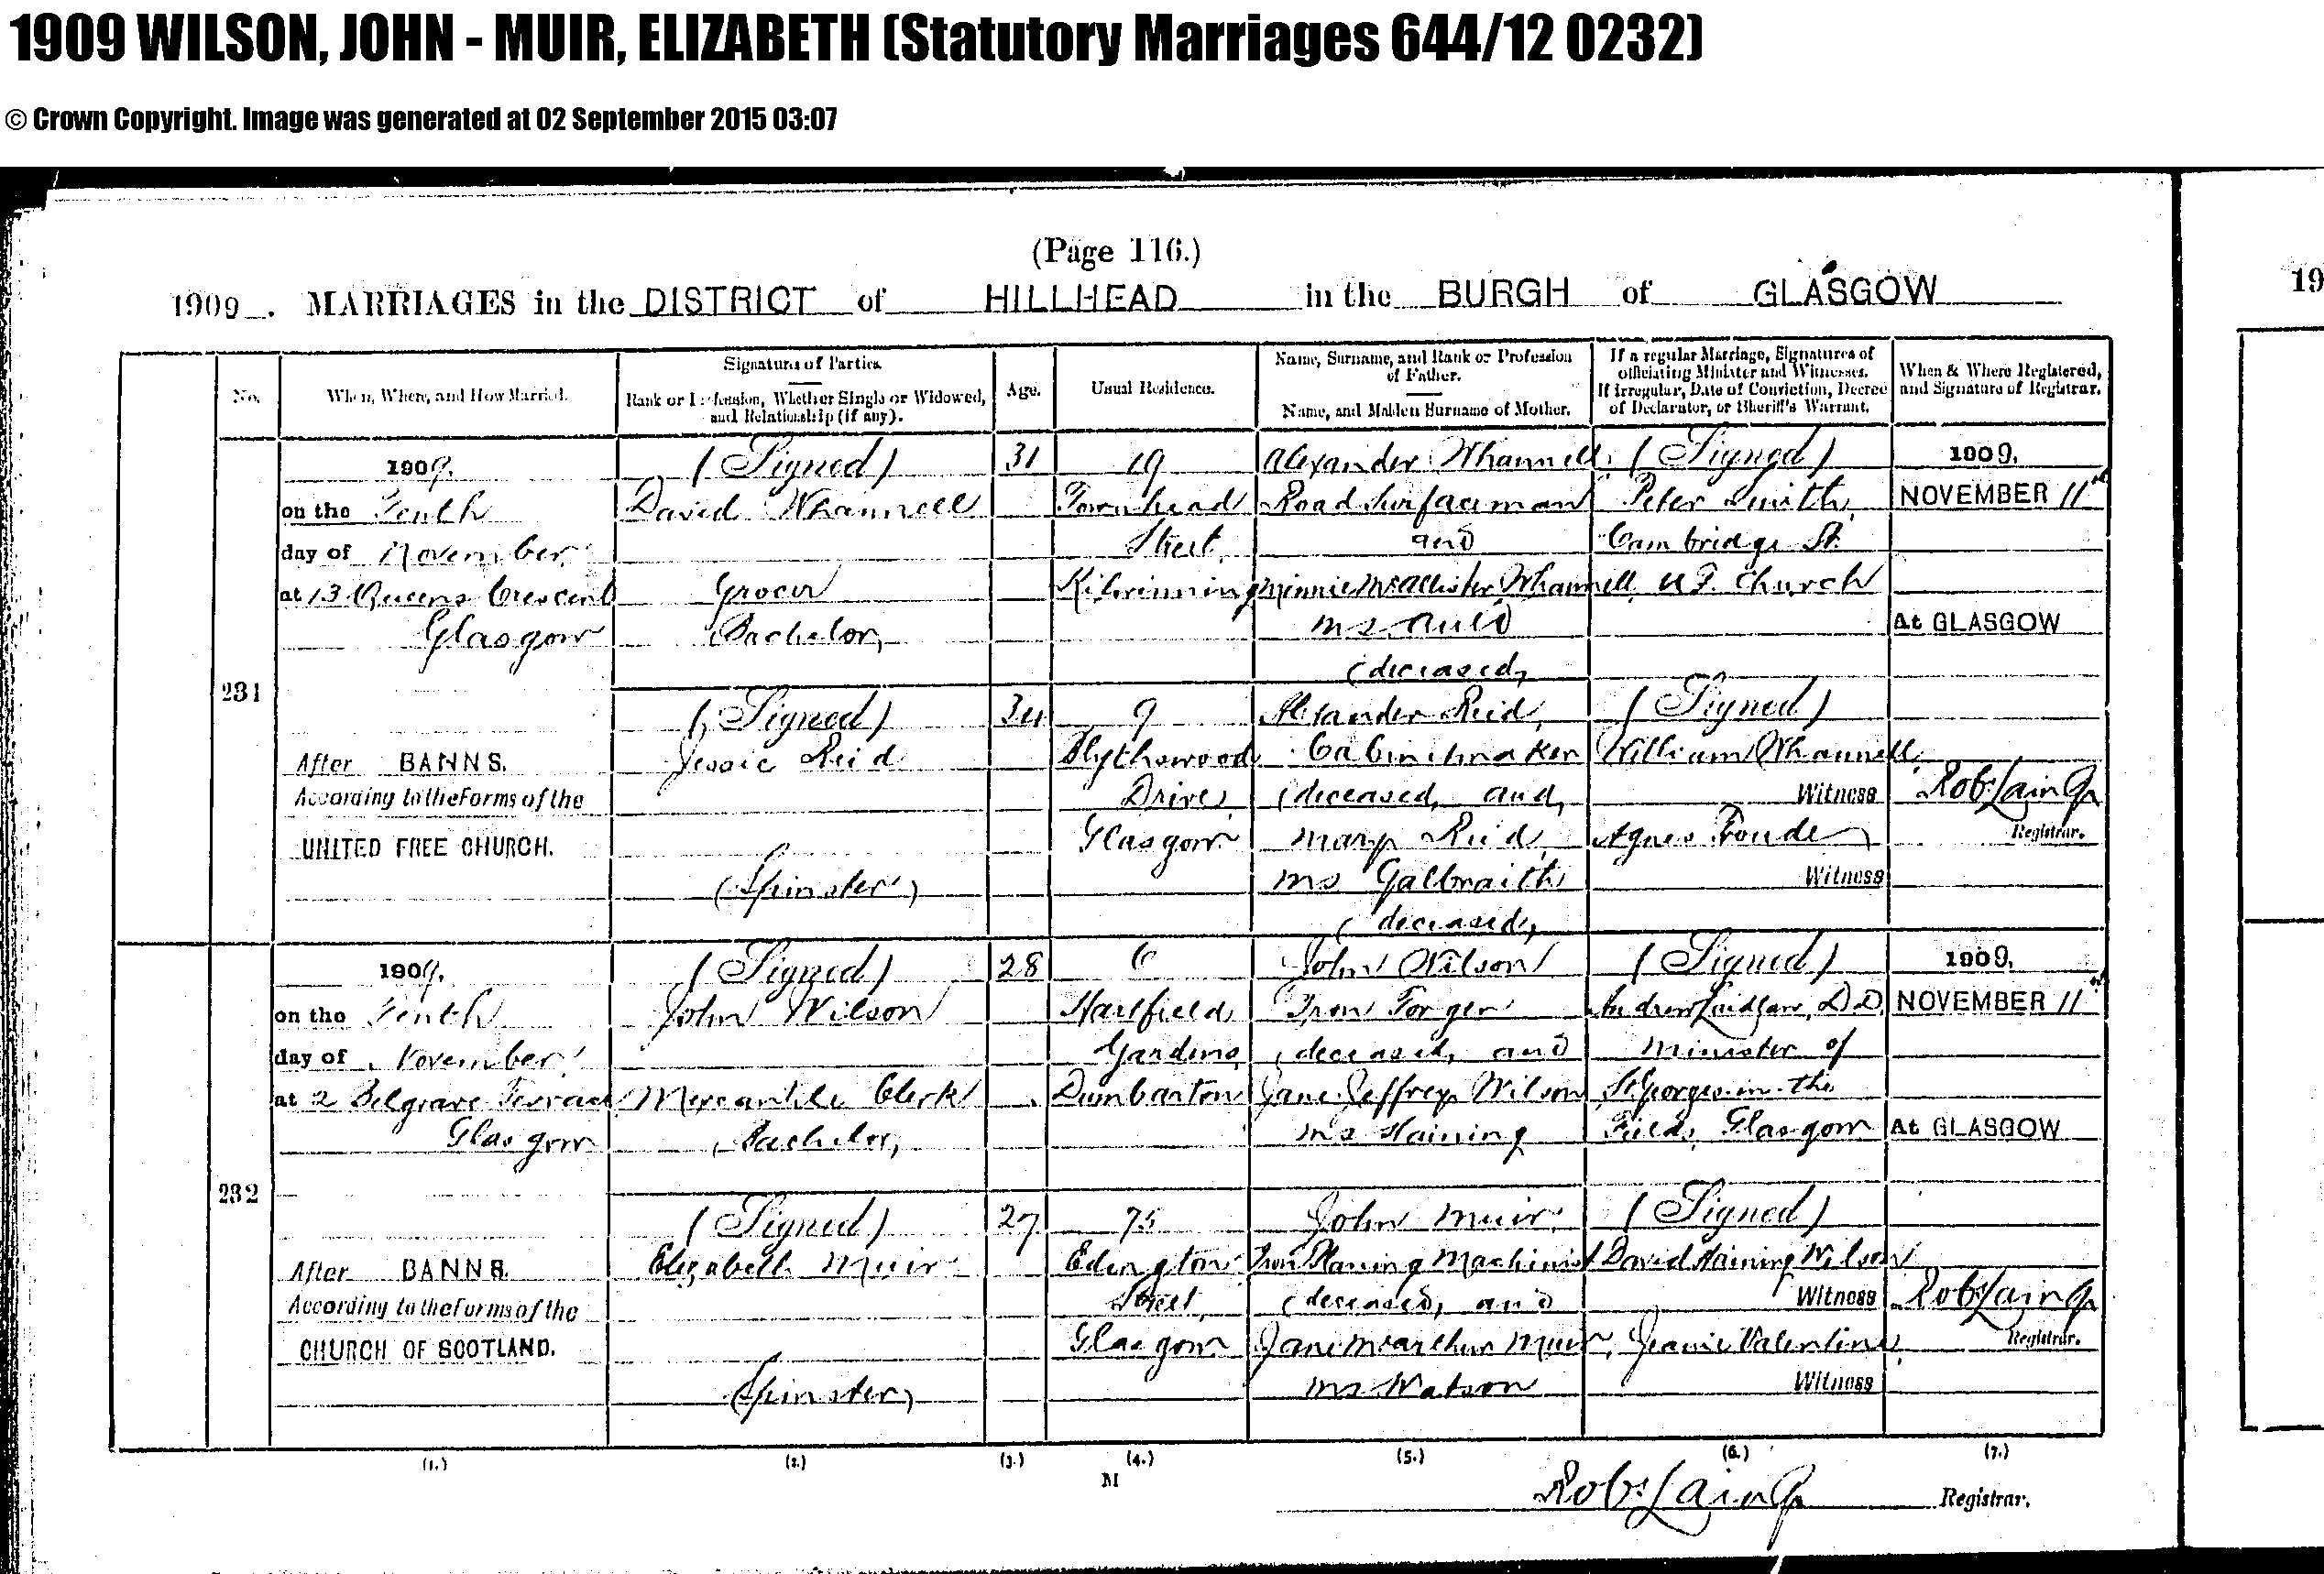 1909 WILSON, JOHN - MUIR, ELIZABETH (Statutory Marriages 644/12 0232)
© Crown Copyright. Image was generated at 02 September 2015 03:07
(Page 116.)
1909. MARRIAGES in the DISTRICT of HILLHEAD in the BURGH of GLASGOW
19
No.
When, Where, and How Married.
Signatures of Parties.
Rank or Profession, Whether Single or Widowed,
and Relationship (if any).
Age.
Usual Residence.
Name, Surname, and Rank or Profession
of Father.
Name, and Maiden Surname of Mother.
If a regular Marriage, Signatures of
officiating Minister and Witnesses.
If irregular, Date of Conviction, Decree
of Declarator, or Sheriff's Warrant.
When & Where Registered,
and Signature of Registrar.
231
1909.
on the Tenth
day of November
at 13 Queens Crescent
Glasgow
After BANNS.
According to the Forms of the
UNITED FREE CHURCH.
(Signed)
David Whannell
Grocer
(Bachelor)
31
19
Townhead
Street
Kilbirnie
Alexander Whannell
Road Surfaceman
and
Minnie McAllister Whannell
ms Auld
(deceased)
(Signed)
Peter Smith
Cambridge St.
U.F. Church
1909.
NOVEMBER 11th
At GLASGOW
(Signed)
Jessie Reid
(Spinster)
34
9
Blythswood
Drive
Glasgow
Alexander Reid,
Cabinetmaker
(deceased) and
Mary Reid
ms Galbraith
(deceased)
(Signed)
William Whannell
Witness
Agnes Froude
Witness
Robt Laing
Registrar.
232
1909.
on the Tenth
day of November
at 2 Belgrave Terrace
Glasgow
After BANNS.
According to the Forms of the
CHURCH OF SCOTLAND.
(Signed)
John Wilson
Mercantile Clerk
(Bachelor)
28
6
Hartfield
Gardens
Dumbarton
John Wilson
Iron Forger
(deceased) and
Jane Jeffrey Wilson
ms Haining
(Signed)
Andrew Laidlaw, D.D.
Minister of
St Georges-in-the
Fields, Glasgow
1909.
NOVEMBER 11th
At GLASGOW
(Signed)
Elizabeth Muir
(Spinster)
27
75
Edington
Street
Glasgow
John Muir
Iron Planing Machinist
(deceased) and
Jane McArthur Muir
ms Watson
(Signed)
David Haining Wilson
Witness
Jeanie Valentine
Witness
Robt Laing
Registrar.
(1.) (2.) (3.) (4.) (5.) (6.) (7.)
M
Robt Laing Registrar.